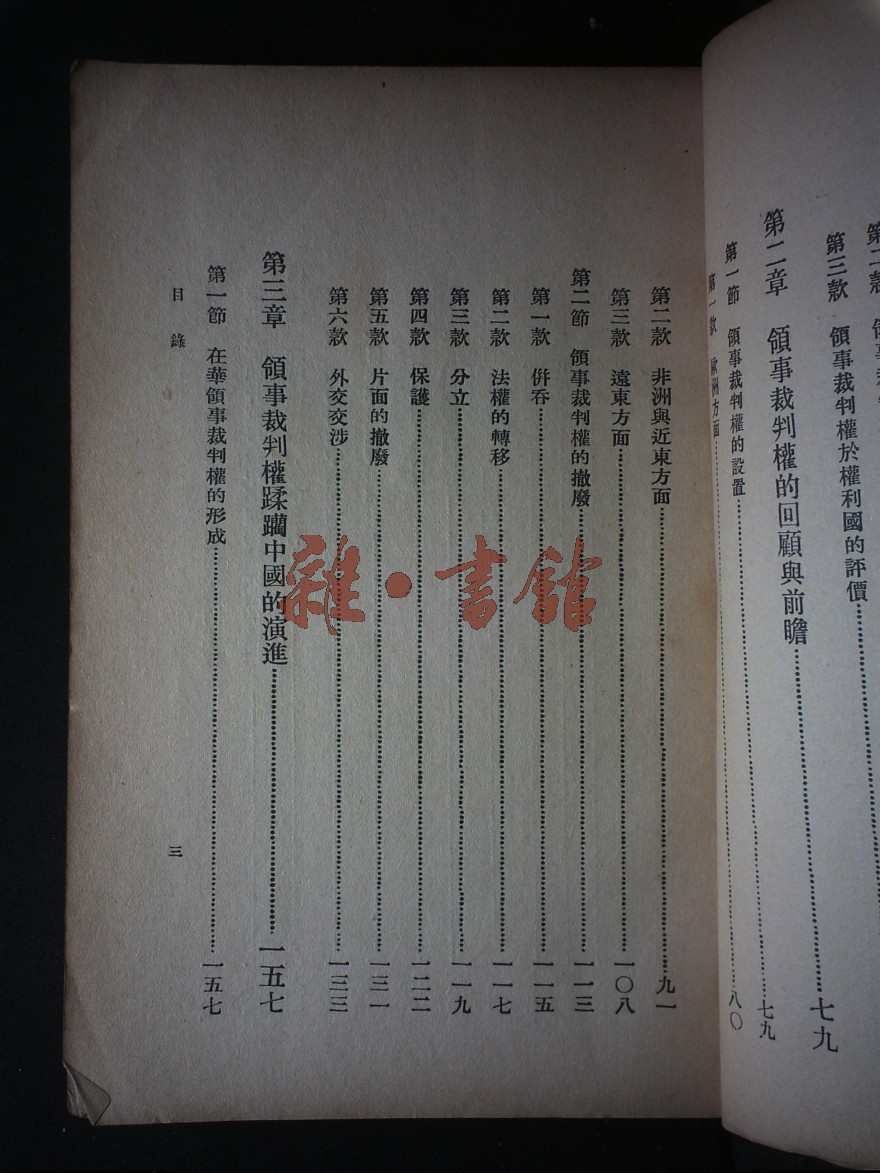 第三款　領事裁判權於權利國的評價
第二章　領事裁判權的回顧與前瞻…………七九
第一節　領事裁判權的設置…………七九
第一款　歐洲方面…………八〇
第二款　非洲與近東方面…………九一
第三款　遠東方面…………一〇八
第二節　領事裁判權的撤廢…………一一三
第一款　併吞…………一一五
第二款　法權的轉移…………一一七
第三款　分立…………一一九
第四款　保護…………一二二
第五款　片面的撤廢…………一三一
第六款　外交交涉…………一三三
第三章　領事裁判權蹂躪中國的演進…………一五七
第一節　在華領事裁判權的形成…………一五七
目錄　三
雜·書館